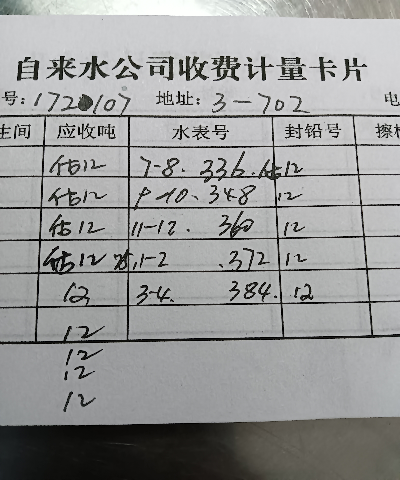 自来水公司收费计量卡片
号:1720107 地址:3-702 电
生间 应收吨 水表号 封铅号 擦
估12 7-8. 336. 估12
估12 9-10. 348 12
估12 11-12. 360 12
估12 1-2 .372 12
12 3-4. 384. 12
12
12
12
12